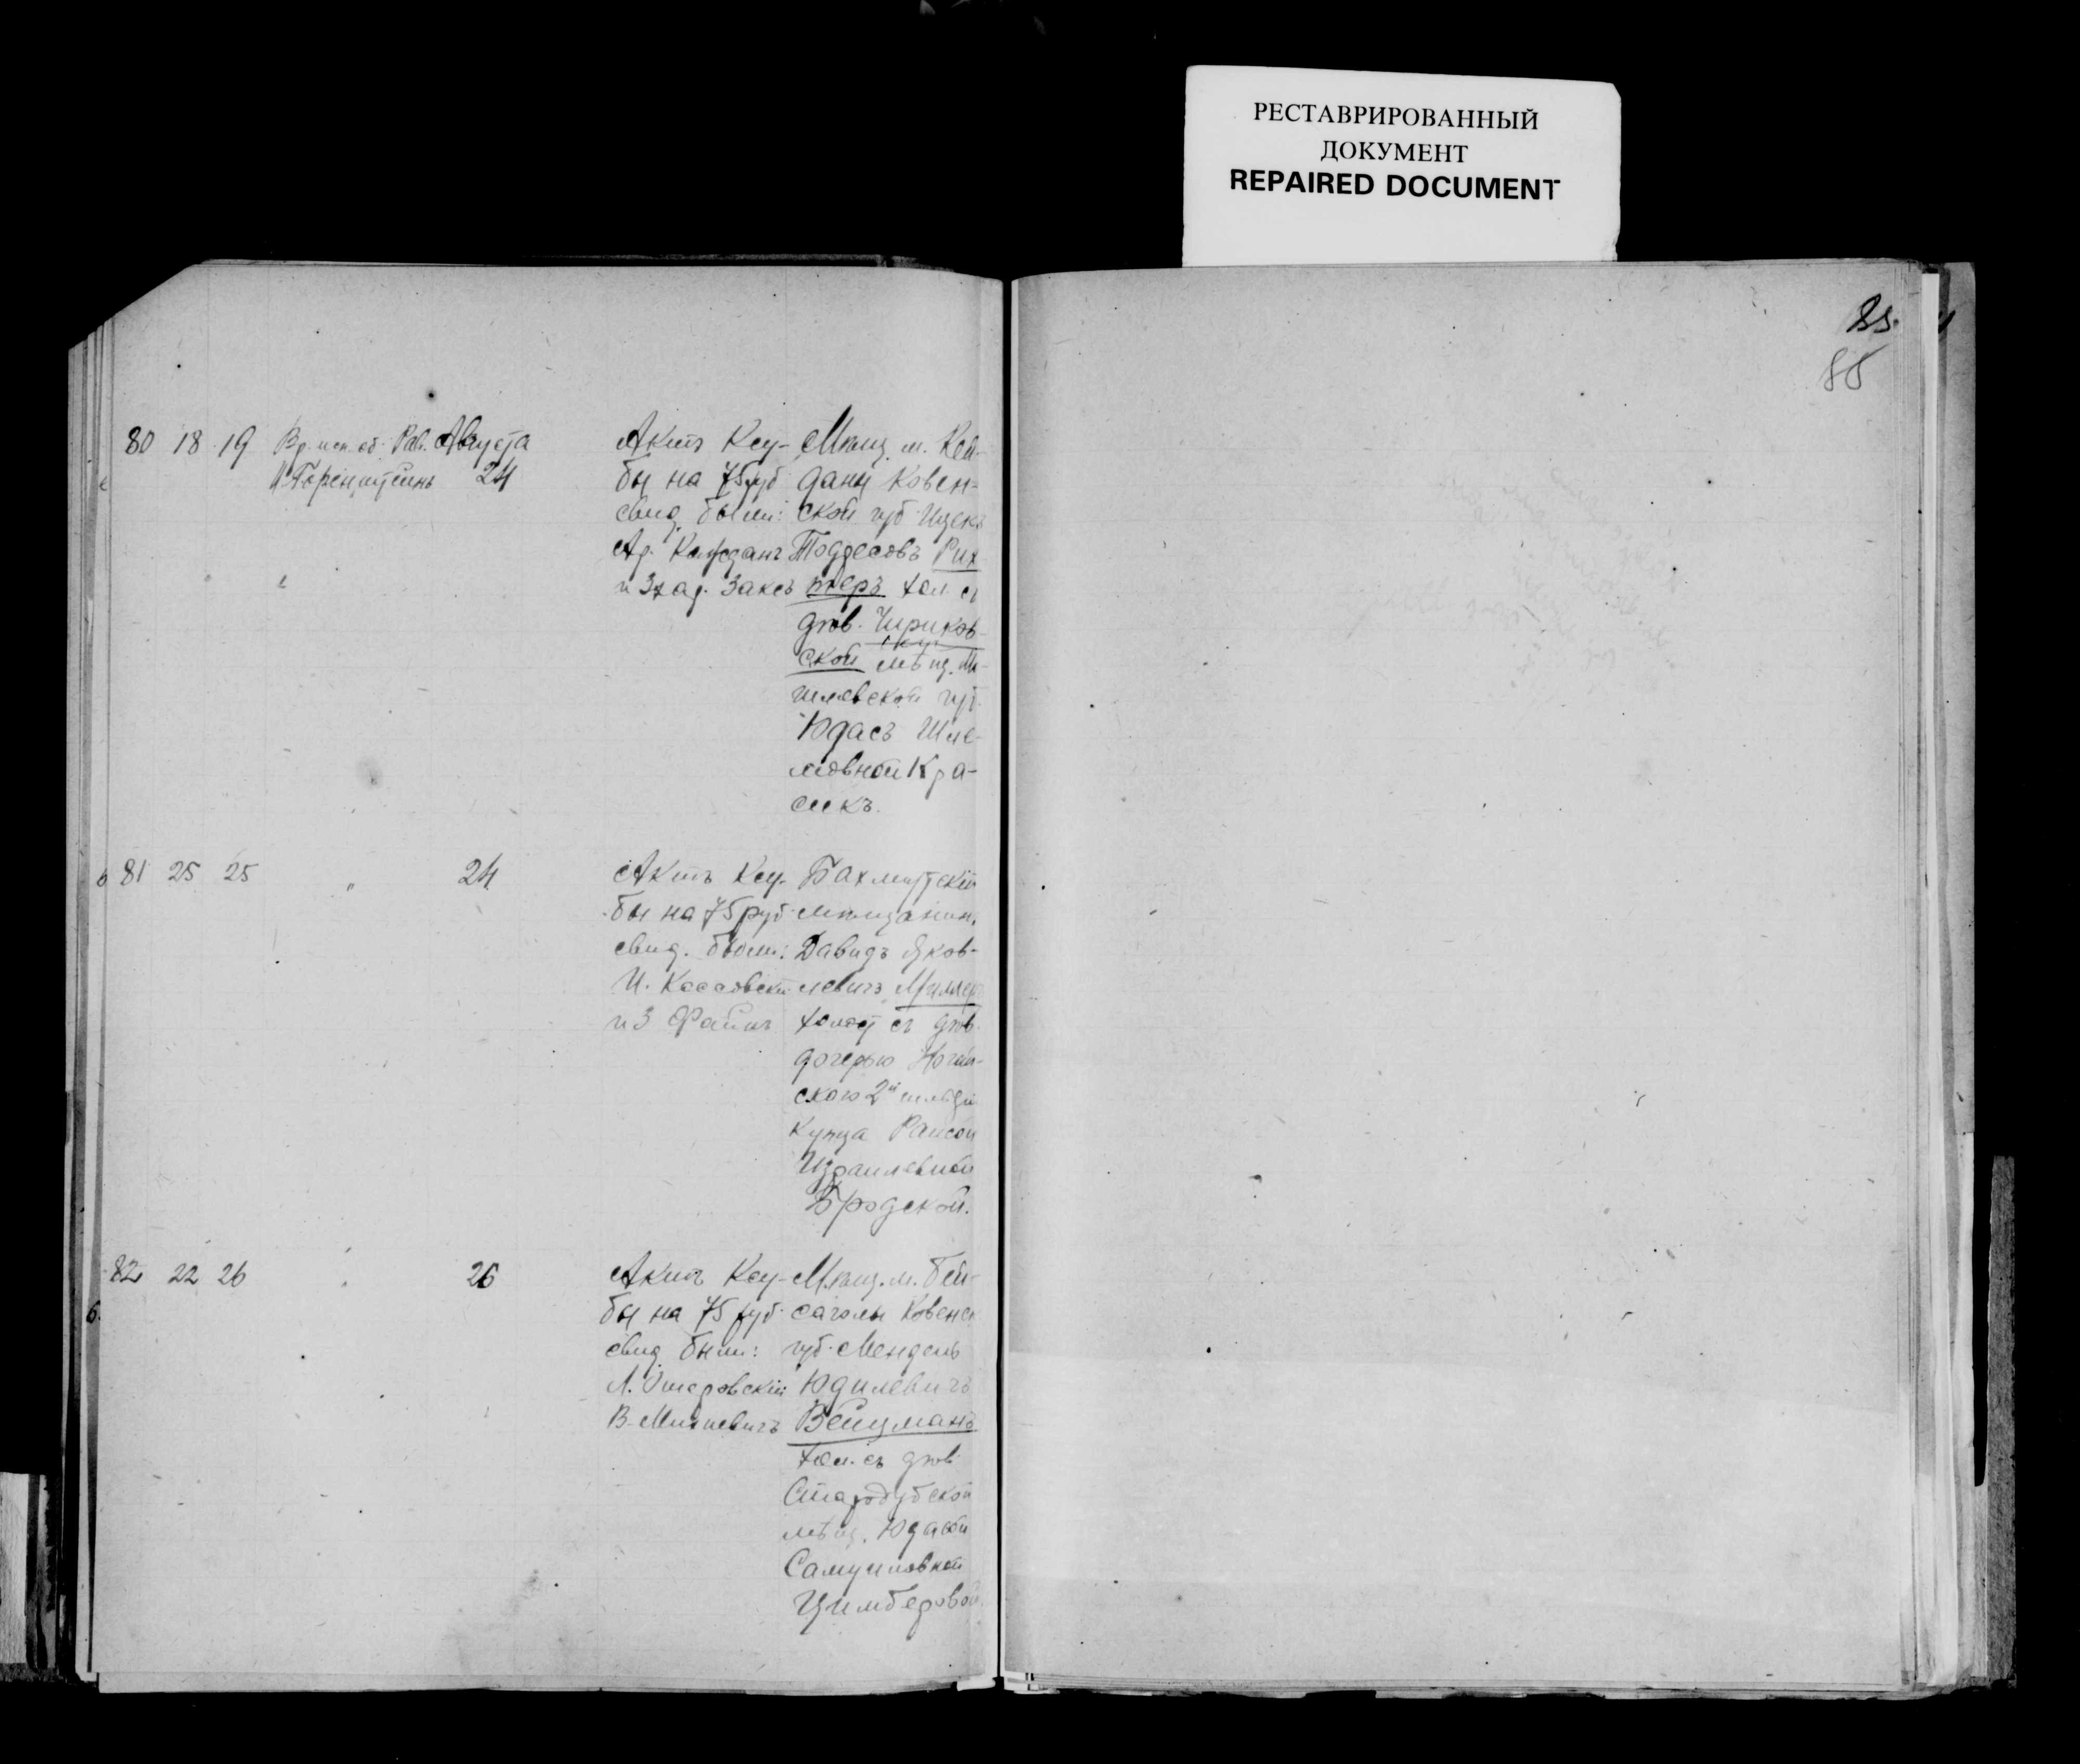 РЕСТАВРИРОВАННЫЙ
ДОКУМЕНТ
REPAIRED DOCUMENT
85.
85
80 18 19 Вр. исп. об. Рав. Августа
24
Актъ Ксу-
бы на 75 руб
свид. были:
Ар. Кажданъ
и Заксъ
Мѣщ. м. Кей-
даны Ковен-
ской губ Ицекъ
Тодресовъ Рих
теръ хол. съ
дѣв. Чериков-
ской мѣщ. Мо-
гилевской губ.
Юдасъ Шле-
мовной Кра-
сикъ.
81 25 25 " 24
Актъ Ксу-
бы на 75 руб.
свид. были:
И. Коссовскій
и З Файнъ
Бахмутскій
мѣщанин.
Давидъ Яков-
левичъ Миллеръ
холост съ дѣв.
дочерью Ногай-
скаго 2й гильдіи
купца Раисой
Израилевной
Бродской.
82 22 26 " 26
Актъ Ксу-
бы на 75 руб.
свид. были:
В. Милкевичъ
Мѣщ. м. Бей-
саголы Ковенск
губ. Мендель
Юдилевичъ
Вейцманъ
хол. съ дѣв.
Стародубской
мѣщ. Юдасой
Самуиловной
Цимберовой.